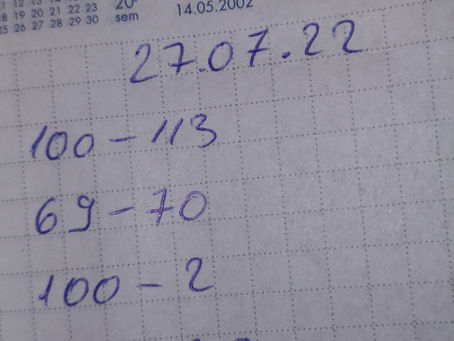 11 12 13
18 19 20 21 22 23
25 26 27 28 29 30
20
sem
14.05.2002
27.07.22
100 - 113
69 - 70
100 - 2